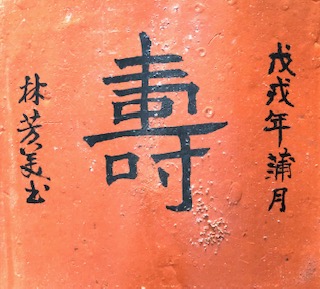 戊戌年蒲月
壽
林芳美书